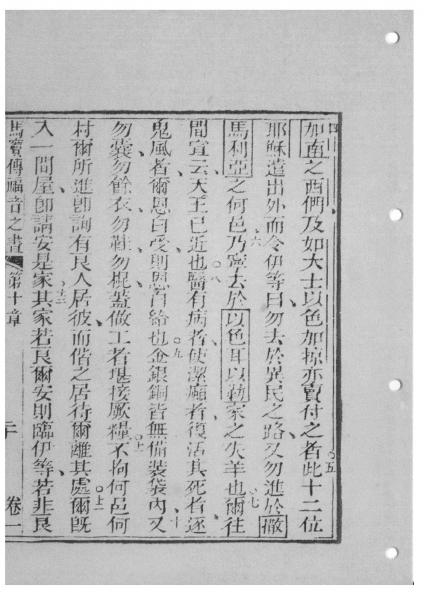 加南之西們及如大士以色加掠亦賣付之者此十二位
耶穌遣出外而令伊等曰勿去於異民之路又勿進於撒
馬利亞之何邑乃寧去於以色耳以勒家之失羊也爾往
間宣云天王已近也醫有病者使潔癩者復活其死者逐
鬼風者爾恩白受則恩白給也金銀銅皆無備裝袋內又
勿囊勿餘衣勿鞋勿棍蓋做工者堪接厥糧不拘何邑何
村爾所進即詢有良人居彼而偕之居待爾離其處爾既
入一間屋即請安是家其家若良爾安則臨伊等若非良
馬竇傳福音之書 第十章 二十 卷一